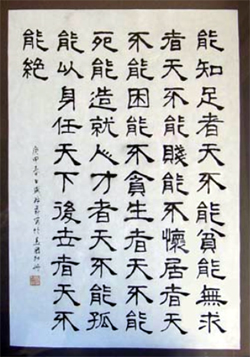 能知足者天不能貧能無求
者天不能賤能不懷居者天
不能困能不貪生者天不能
死能造就人才者天不能孤
能以身任天下後世者天不
能絕